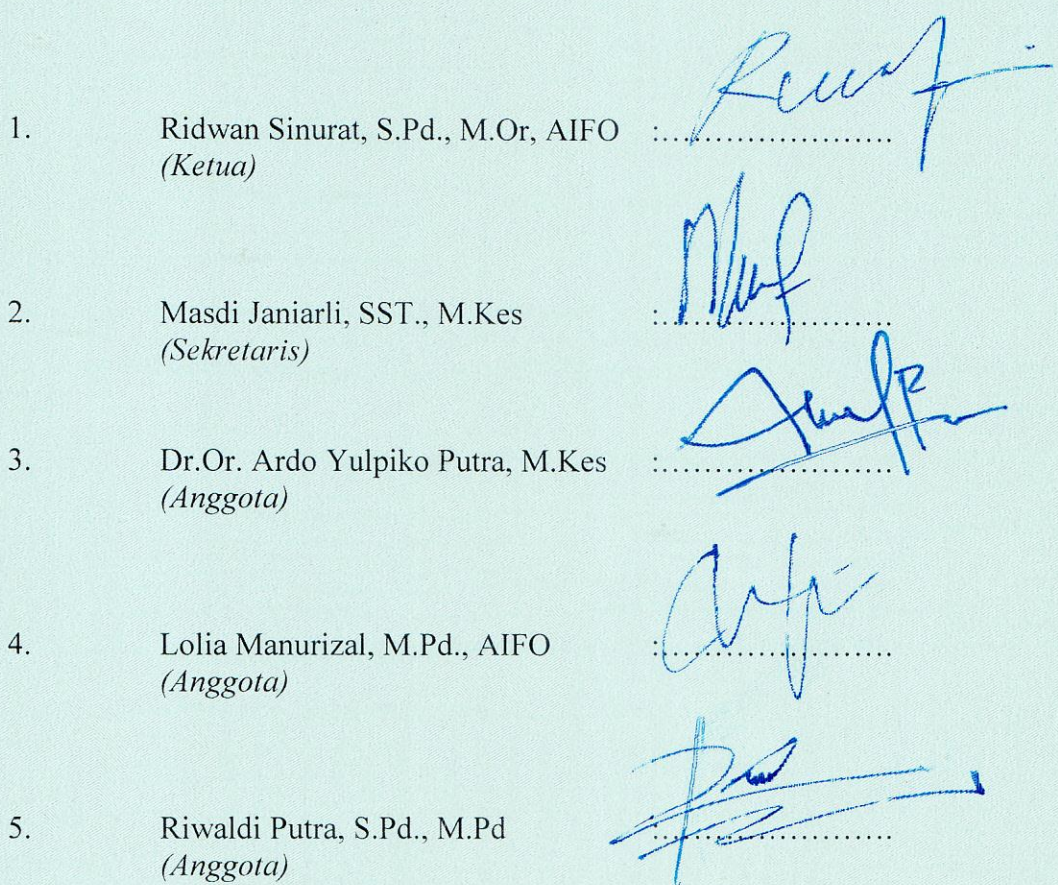 1. Ridwan Sinurat, S.Pd., M.Or, AIFO :........................
(Ketua)
2. Masdi Janiarli, SST., M.Kes :........................
(Sekretaris)
3. Dr.Or. Ardo Yulpiko Putra, M.Kes :........................
(Anggota)
4. Lolia Manurizal, M.Pd., AIFO :........................
(Anggota)
5. Riwaldi Putra, S.Pd., M.Pd :........................
(Anggota)